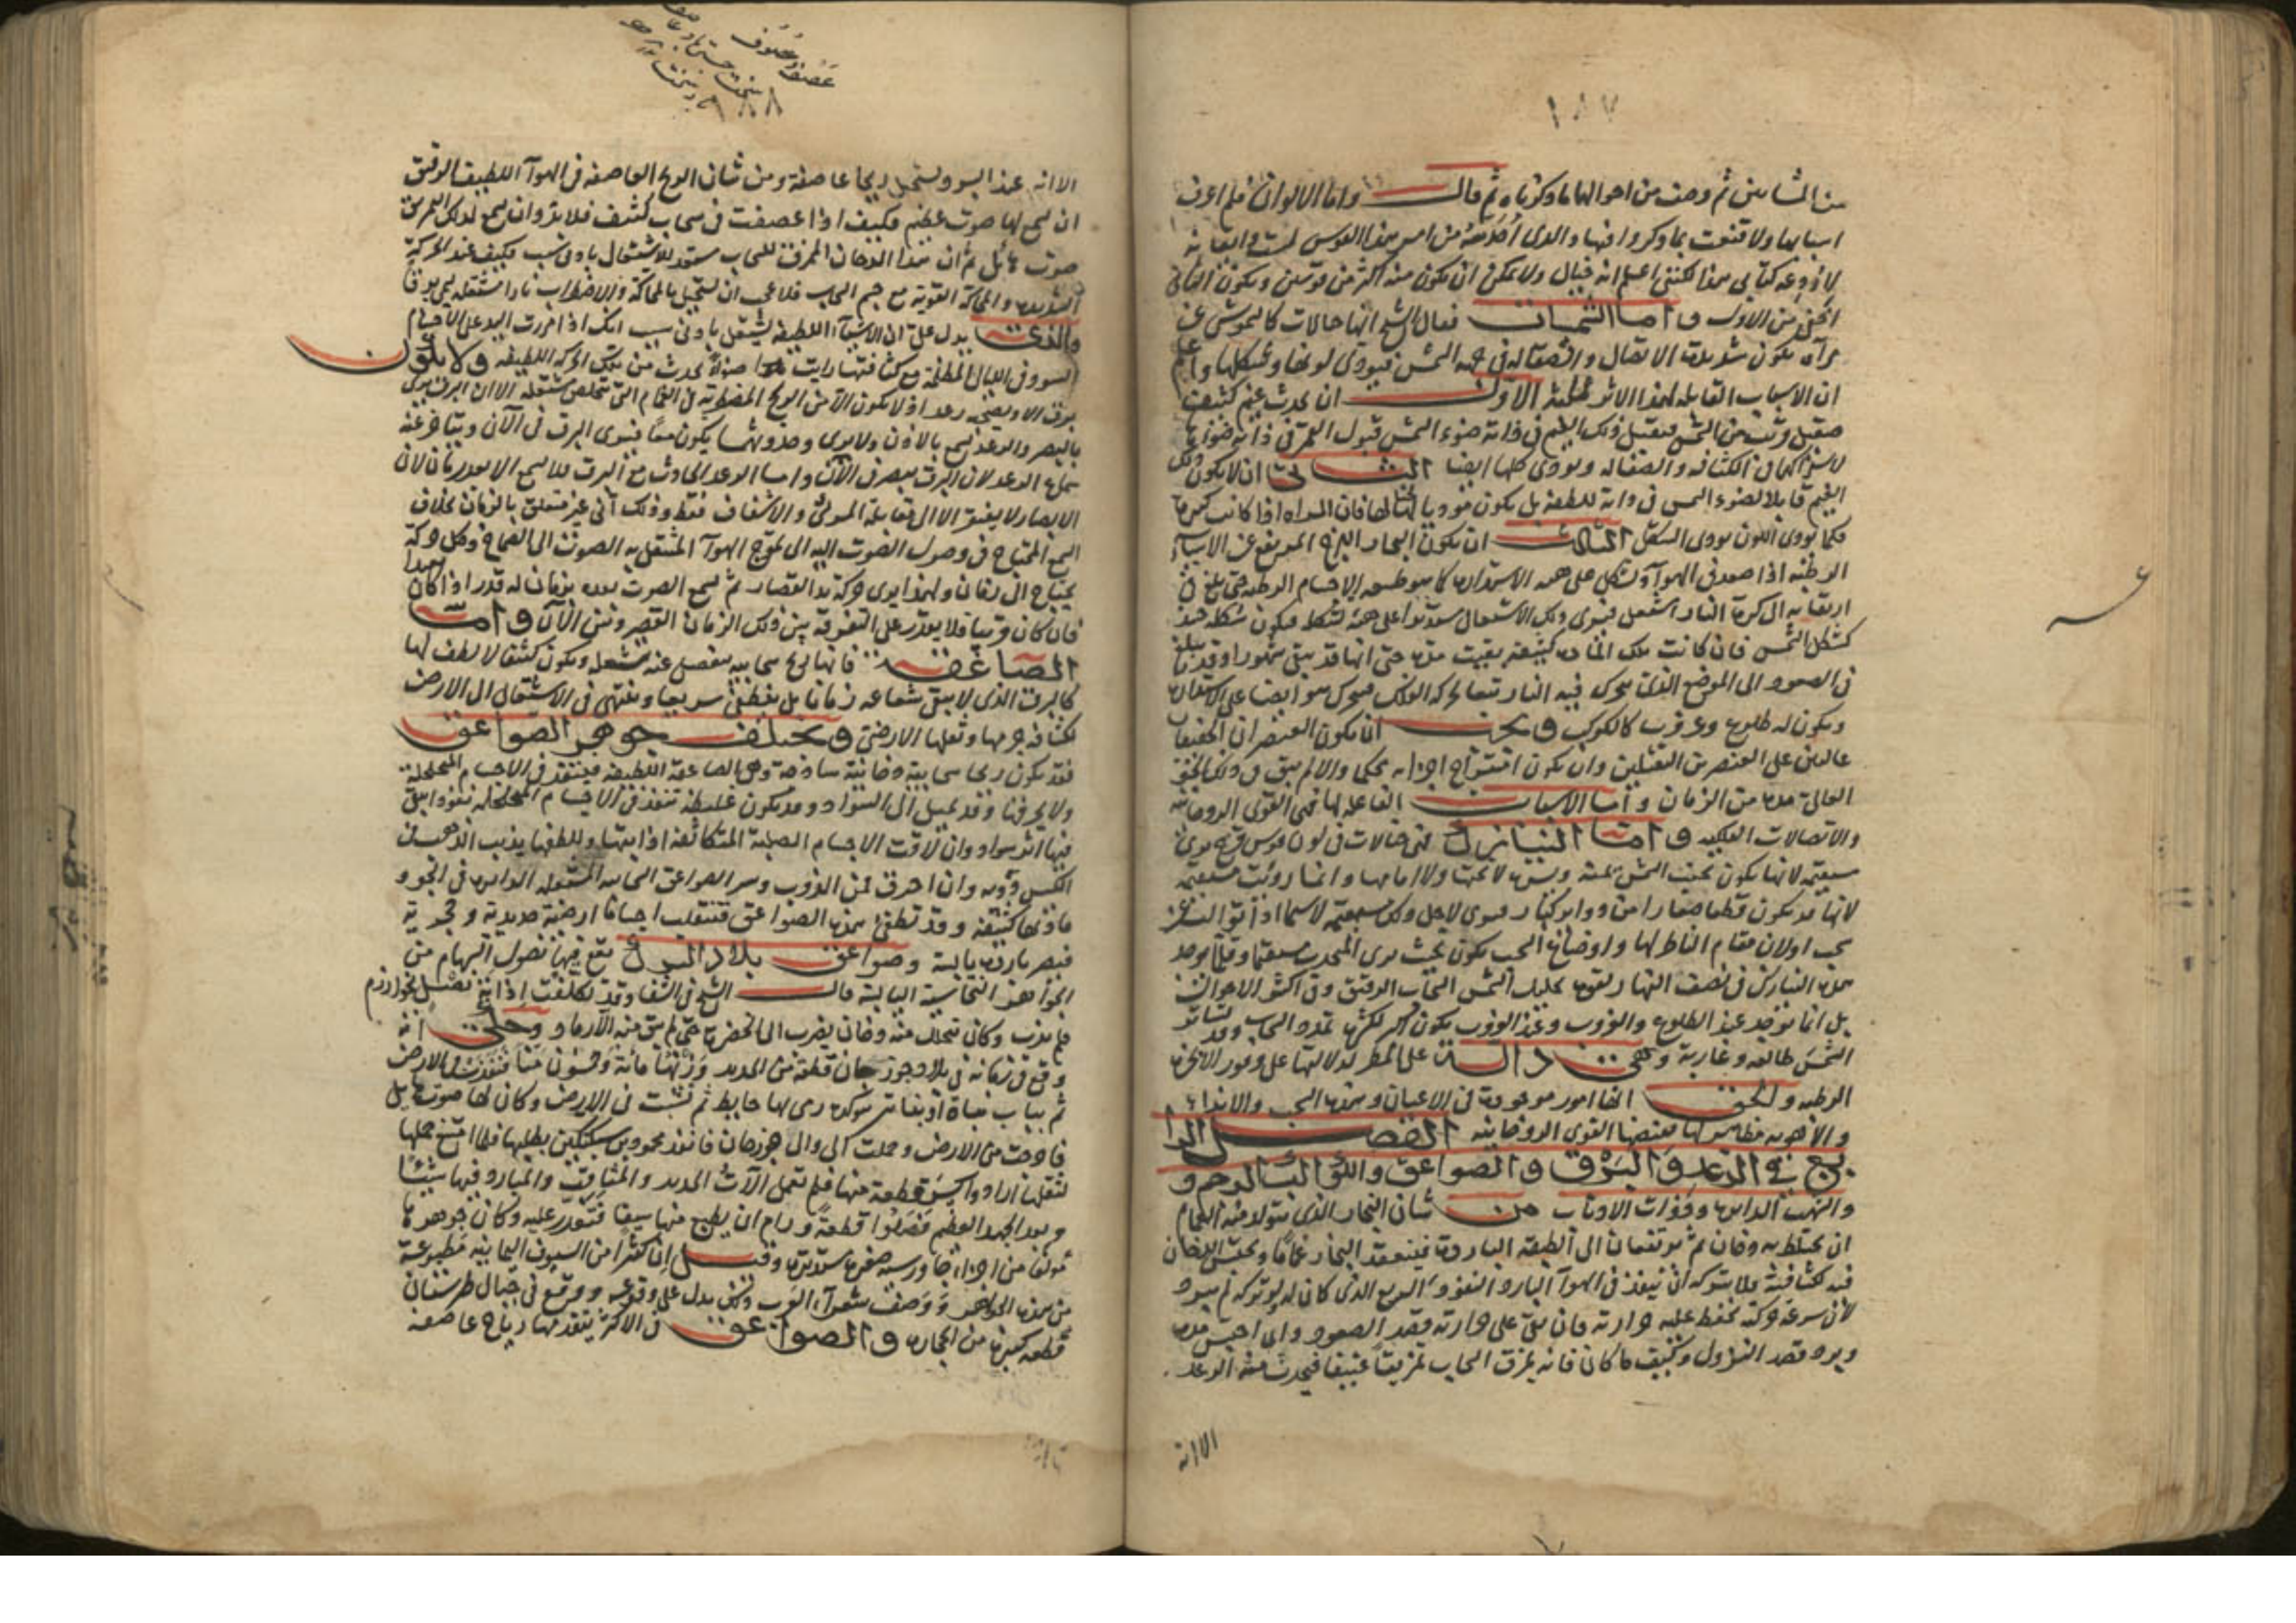 ١٨٧
من المشائين ثم وصف من احوالها ما ذكرناه ثم قال واما الالوان فلم اعرف
اسبابها ولا قنعت بما ذكروا فيها والذى من امر هذا القوس لست
كتابى هذا لكننى اعلم انه خيال ولا يمكن ان يكون منه اكثر من قوسين ويكون الثانى
من الاول واما الشميسات فقال الشيخ انها خيالات كالشموس عن
مرآة يكون شديدة الاتصال والصقالة فى جهة الشمس فيودى لونها وشكلها واعلم
ان الاسباب القابله لهذا الاثر ثلثة الاول ان يحدث غيم كثيف
صقيل وقريب من الشمس فيقبل ذلك الغيم فى ذاته ضوء الشمس قبول القمر فى ذاته
الكثافه والصقاله ويودى كلها ايضا الثانى ان لا يكون ذلك
الغيم قابلا لضوء الشمس فى ذاته للطفه بل يكون موديا لها فان المراه اذا كانت كبيرة
فكما يودى اللون يودى الشكل الثالث ان يكون البخار اللزج المرتفع عن الاشياء
الرطبه اذا صعد فى الهوآ وتشكل على هيه الاستداره كما هو طبيعه الاجسام الرطبه حتى بلغ فى
ارتقائه الى كرة النار اشتعل فيرى ذلك الاشتعال مستديرا على هيئة شكله فيكون شكله حينئذ
كشكل الشمس فان كانت تلك المادة كثيفة بقيت مدة حتى انها قد تبقى شهورا وقد
فى الصعود الى الموضع الذى يتحرك فيه النار تبعا لحركه الفلك فيتحرك هو ايضا على الاستدارة
ويكون له طلوع وغروب كالكواكب ويجب ان يكون العنصران الخفيفان
غالبين على العنصرين الثقيلين وان يكون امتزاج اجزائه محكما والا لم يبق فى ذلك الجو
العالى مدة من الزمان واما الاسباب الفاعله لها فهى القوى الروحانيه
والاتصالات الفلكيه واما النيازك فهى خيالات فى لون قوس قزح ترى
مستقيمه لانها يكون بجنب الشمس يمنة ويسرة لا تحتها ولا امامها وانما رويت مستقيمة
لانها قد يكون قطعا صغارا من دوائر كبار فيرى لاجل ذلك مستقيمه لا سيما اذا
اولان مقام الناظر لها واوضاع السحب يكون بحيث يرى المنحدب مستقيما وقلما يوجد
هذه النيازك فى نصف النهار لقوه تحليل الشمس السحاب الرقيق وفى اكثر الاحوال
بل انما يوجد عند الطلوع والغروب وعند الغروب يكون اكثر لكثرة تمدد السحاب وقد تساير
الشمس طالعه وغاربة وهى دالة على المطر لدلالتها على وفور الابخرة
الرطبه والحق انها امور موجودة فى الاعيان وهذه السحب والانداء
والاهويه مظاهر لها تقتضيها القوى الروحانيه الفصل الرا
بع فى الرعد والبرق والصواعق والكواكب الرجم و
والشهب الدايره وذوات الاذناب من شان البخار الذى يتولد منه الغمام
ان يختلط به دخان ثم يرتفعان الى الطبقة البارده فينعقد البخار غماما ويحتبس الدخان
فيه
لان سرعة حركته تحفظ عليه حرارته فان بقى على حرارته قصد الصعود وان احتبس
وبرد قصد النزول وكيف ما كان فانه يمزق السحاب تمزيقا عنيفا فيحدث منه الرعد
الا انه
١٨٨
الا انه عند البرد يستحيل ريحا عاصفة ومن شان الريح العاصفه فى الهوآ اللطيف الرقيق
ان يسمع لها صوت عظيم فكيف اذا عصفت فى سحاب كثيف فلا بد وان يسمع لذلك التمزيق
صوت هايل ثم ان هذا الدخان الممزق للسحاب مستعد للاشتعال بادنى سبب فكيف عند الحركة
الشديده والمحاكة القوية مع جسم السحاب فلا عجب ان يستحيل بالمحاكة والاضطراب نارا مشتعله يسمى برقا
والذى يدل على ان الاشيآ اللطيفة يشتعل بادنى سبب انك اذا امررت اليد على الاجسام
السود فى الليالى المظلمة مع كثافتها رايت ضوءا يحدث من تلك الحركه اللطيفه ولا يكون
برق الا ويصحبه رعد اذ لا يكون الا من الريح المضطربة فى الغمام التى تتخلص مشتعله الا ان البرق يرى
بالبصر والرعد يسمع بالاذن ولا يرى وحدوثهما يكون معا فيرى البرق فى الآن ويتاخر عنه
سماع الرعد لان البرق يبصر فى الآن واما الرعد الحادث مع البرق فلا يسمع الا بعد زمان لان
الابصار لا يفتقر الا الى مقابلة المرئى والاشفاف فقط وذلك آنى غير متعلق بالزمان بخلاف
السمع المحتاج فى وصول الصوت اليه الى تموج الهوآ المنتقل به الصوت الى الصماخ وكل حركة
يحتاج الى زمان ولهذا يرى حركة يد القصار ثم يسمع الصوت بعده بزمان له قدر اذا كان بعيدا
فان كان قريبا فلا يقدر على التفرقه بين ذلك الزمان القصير وبين الآن واما
الصاعقة فانها ريح سحابيه ينفصل عنه مشتعله ويكون كثيفا لا لطف لها
كالبرق الذى لا يبقى شعاعه زمانا بل ينطفئ سريعا وينتهى فى الاشتعال الى الارض
لكثافة جرمها وثقلها الارضى ويختلف جوهر الصواعق
فقد يكون ريحا سحابية دخانية ساذجة وهى الصاعقة اللطيفه فينفذ فى الاجسام المتخلخلة
ولا يحرقها وقد تميل الى السواد وقد يكون غليظه تنفذ فى الاجسام المتخلخله نفوذا يبقى
فيها اثر سواد وان لاقت الاجسام الصلبة المتكاثفة اذابتها وللطفها يذيب الذهب
وان احرق
مادتها كثيفه وقد تطفئ هذه الصواعق فتنقلب اجساما ارضية حديدية وحجرية
فيصير باردة يابسة وصواعق بلاد الترك يقع فيها نصول السهام من
الجواهر النحاسية اليابسة قال الشيخ فى الشفا وقد تكلفت اذابة نصل بخوارزم
فلم يذب وكان يتحلل منه دخان يضرب الى الخضرة حتى لم يبق منه الا رماد وحكى انه
وقع فى زمانه فى بلاد جوزجان قطعة من الحديد وزنها مائة وخمسون منا فنفذت فى الارض
ثم نبا نبوة او بنات كره يرمى بها حايط ثم نشبت فى الارض وكان لها صوت هايل
من الارض وحملت الى والى جوزجان فانفذ محمود بن سبكتكين يطلبها فلما امتنع حملها
لثقلها ارادوا كسر قطعة منها فلم تعمل الآت الحديد والمثاقب والمبارد فيها شيئا
وبعد الجهد العظيم فصلوا قطعة ورام ان يطبع منها سيفا فتعذر عليه وكان جوهرها
مولفا من اجزاء جاورسية صغيرة مستديرة وقيل ان كثيرا من السيوف اليمانية مطبوعة
من هذه الجواهر ووصف شعرآء العرب ذلك يدل على وقوعه ووقع فى جبال طبرستان
قطعه كبيرة من الحجارة والصواعق فى الاكثر يتقدمها رياح عاصفه